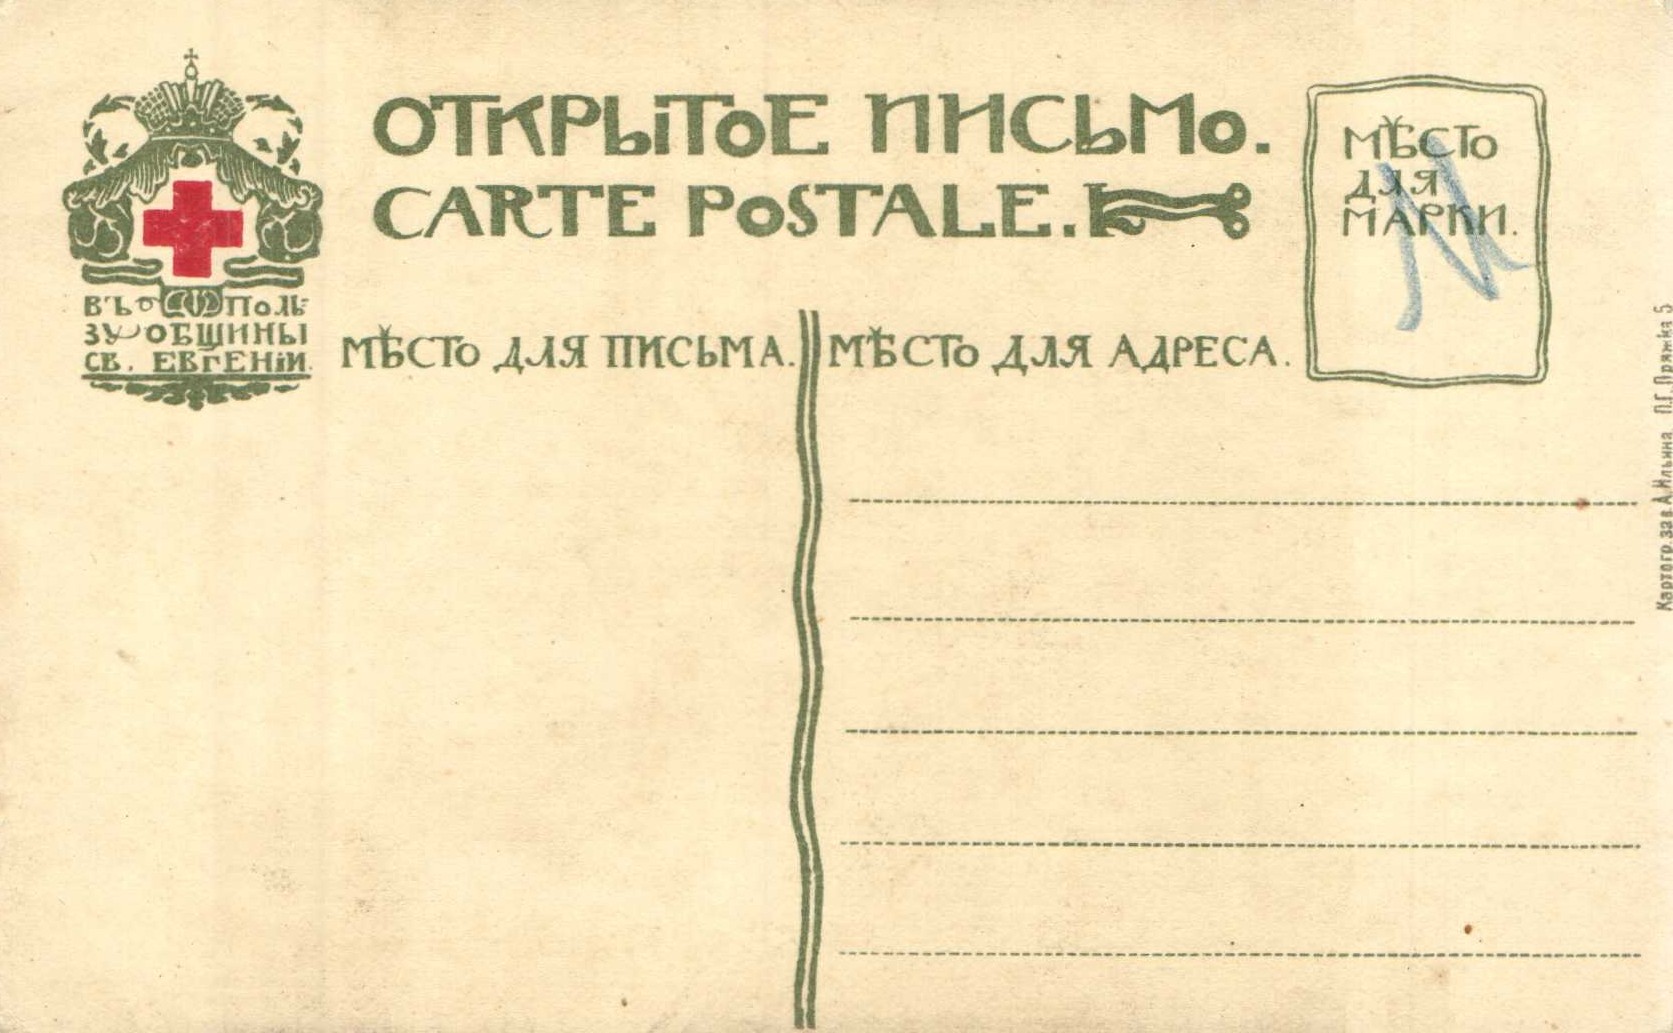 ОТКРЫТОЕ ПИСЬМО.
CARTE POSTALE.
МѢСТО
ДЛЯ
МАРКИ.
ВЪ ПОЛЬ-
ЗУ ОБЩИНЫ
СВ. ЕВГЕНІИ.
МѢСТО ДЛЯ ПИСЬМА.
МѢСТО ДЛЯ АДРЕСА.
Картогр. зав. А. Ильина П.Г. Пряжка 5